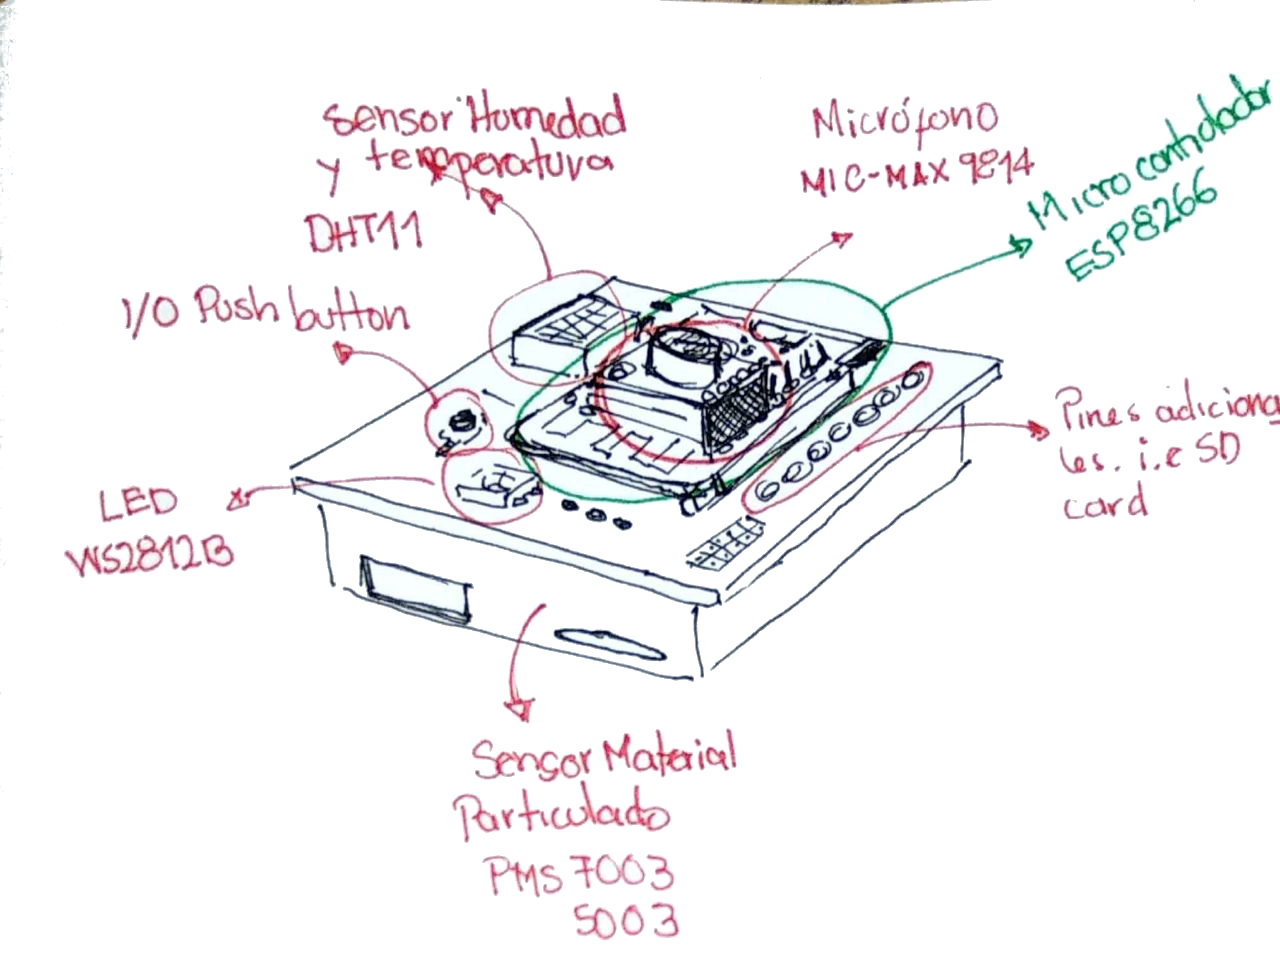 Sensor Humedad
y temperatura
DHT11
Micrófono
MIC-MAX 9814
Microcontrolador
ESP8266
I/O Push button
Pines adiciona
les. i.e SD
card
LED
WS2812B
Sensor Material
Particulado
PMS 7003
5003